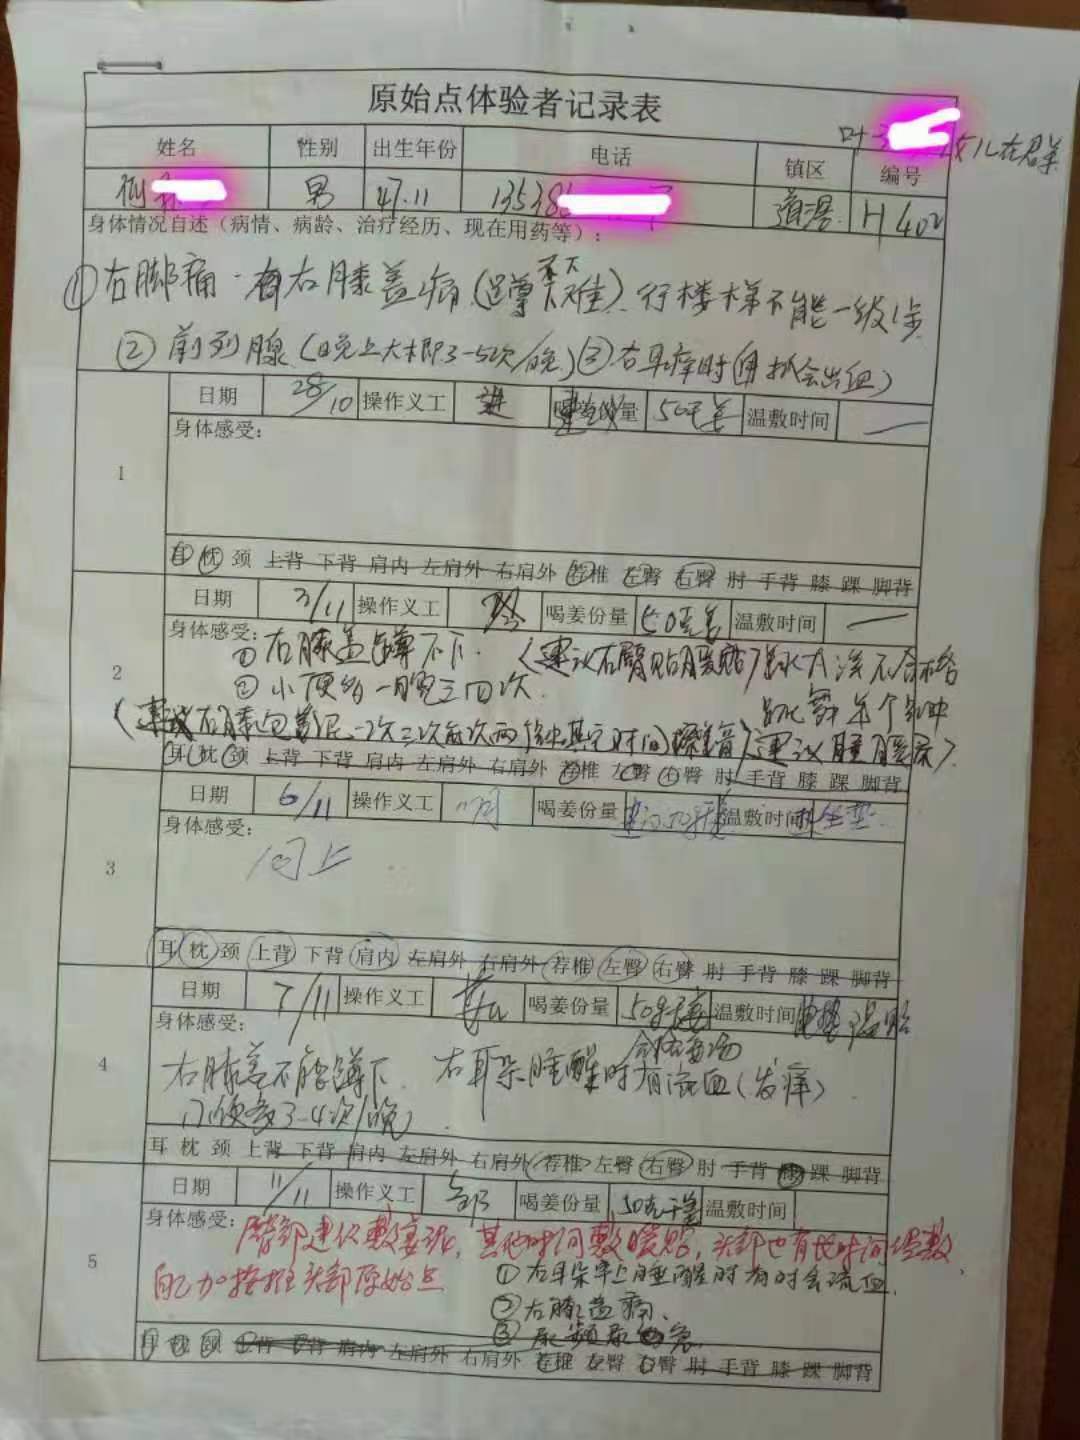 原始点体验者记录表
女儿在群
姓名 性别 出生年份 电话 镇区 编号
男 47.11 13538 道滘 H402
身体情况自述（病情、病龄、治疗经历、现在用药等）：
①右脚痛 右膝盖痛（蹲下难），行楼梯不能一级1步
②前列腺（晚上大概3-5次/晚）③右耳痒时（用扒会出血）
1
日期 28/10 操作义工 喝姜份量 50干姜 温敷时间 一
身体感受：
耳 枕 颈 上背 下背 肩内 左肩外 右肩外 荐椎 左臀 右臀 肘 手背 膝 踝 脚背
2
日期 3/11 操作义工 喝姜份量 50克姜 温敷时间 一
身体感受：①右膝盖蹲不下.（建议右臀贴暖贴
②小便多一晚三四次.
（建议右膝包姜泥
建议睡暖床）
耳 枕 颈 上背 下背 肩内 左肩外 右肩外 荐椎 左臀 右臀 肘 手背 膝 踝 脚背
3
日期 6/11 操作义工 喝姜份量 温敷时间 坐垫
身体感受：
同上
耳 枕 颈 上背 下背 肩内 左肩外 右肩外 荐椎 左臀 右臀 肘 手背 膝 踝 脚背
4
日期 7/11 操作义工 喝姜份量 50 温敷时间 温贴
身体感受：
右膝盖不能蹲下. 右耳朵睡醒时有流血（发痒）
小便多3-4次/晚）.
耳 枕 颈 上背 下背 肩内 左肩外 右肩外 荐椎 左臀 右臀 肘 手背 膝 踝 脚背
5
日期 11/11 操作义工 喝姜份量 50克干姜 温敷时间
身体感受：臀部建议敷姜泥，其他时间敷暖贴，头部也有长时间温敷，
自己加按推头部原始点
①右耳朵早上睡醒时有时会流血.
②右膝盖痛、
③尿频尿急
耳 枕 颈 上背 下背 肩内 左肩外 右肩外 荐椎 左臀 右臀 肘 手背 膝 踝 脚背